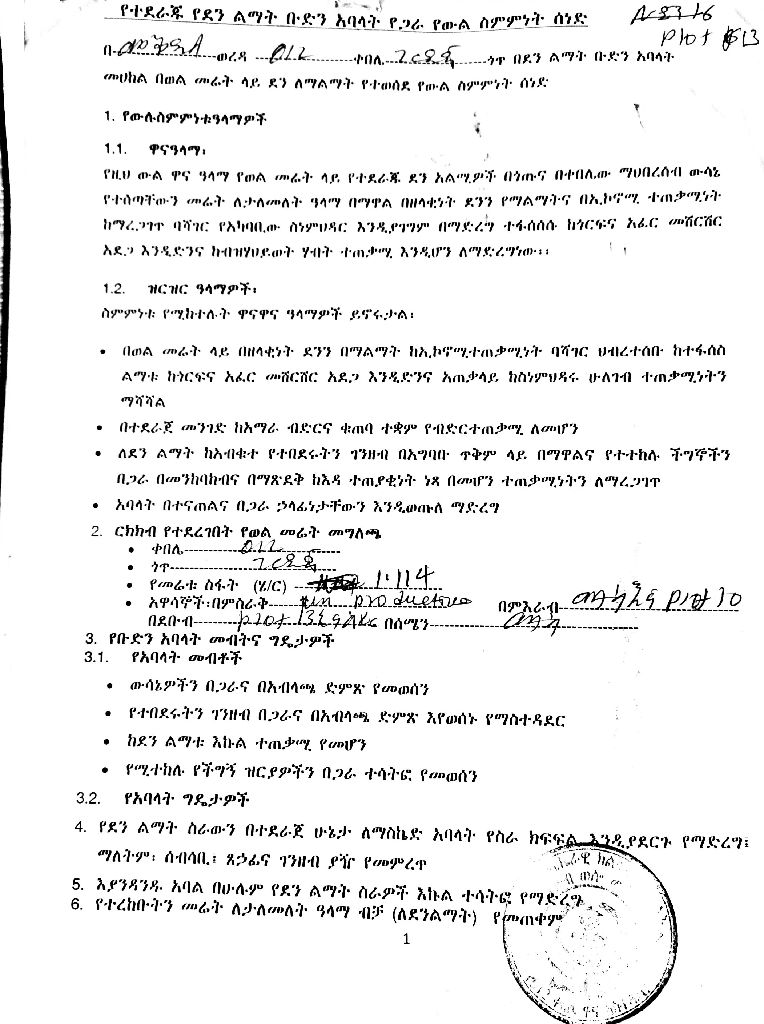 የተደራጁ የደን ልማት ቡድን አባላት የጋራ የውል ስምምነት ሰነድ
Plot 13
በ ወረዳ 012 ቀበሌ ጎጥ በደን ልማት ቡድን አባላት
መሀከል በወል መሬት ላይ ደን ለማልማት የተወሰደ የውል ስምምነት ሰነድ
1. የውሉስምምነቱዓላማዎች
1.1. ዋናዓላማ፡
የዚህ ውል ዋና ዓላማ የወል መሬት ላይ የተደራጁ ደን አልሚዎች በጎጡና በቀበሌው ማህበረሰብ ውሳኔ
የተሰጣቸውን መሬት ለታለመለት ዓላማ በማዋል በዘላቂነት ደንን የማልማትና በኢኮኖሚ ተጠቃሚነት
ከማረጋገጥ ባሻገር የአካባቢው ስነምህዳር እንዲያገግም በማድረግ ተፋሰሱ ከጎርፍና አፈር መሸርሸር
አደጋ እንዲድንና ከብዝሃህይወት ሃብት ተጠቃሚ እንዲሆን ለማድረግነው፡፡
1.2. ዝርዝር ዓላማዎች፡
ስምምነቱ የሚከተሉት ዋናዋና ዓላማዎች ይኖሩታል፡
• በወል መሬት ላይ በዘላቂነት ደንን በማልማት ከኢኮኖሚተጠቃሚነት ባሻገር ህብረተሰቡ ከተፋሰስ
ልማቱ ከጎርፍና አፈር መሸርሸር አደጋ እንዲድንና አጠቃላይ ከስነምህዳሩ ሁለገብ ተጠቃሚነትን
ማሻሻል
• በተደራጀ መንገድ ከአማራ ብድርና ቁጠባ ተቋም የብድርተጠቃሚ ለመሆን
• ለደን ልማት ከአብቁተ የተበደሩትን ገንዘብ በአግባቡ ጥቅም ላይ በማዋልና የተተከሉ ችግኞችን
በጋራ በመንከባከብና በማጽደቅ ከእዳ ተጠያቂነት ነጻ በመሆን ተጠቃሚነትን ለማረጋገጥ
• አባላት በተናጠልና በጋራ ኃላፊነታቸውን እንዲወጡ ለማድረግ
2. ርክክብ የተደረገበት የወል መሬት መግለጫ
• ቀበሌ 012
• ጎጥ
• የመሬቱ ስፋት (ሄ/ር) 1.114
• አዋሳኞች፡በምስራቅ productive በምእራብ plot 10
በደቡብ plot 13 በሰሜን
3. የቡድን አባላት መብትና ግዴታዎች
3.1. የአባላት መብቶች
• ውሳኔዎችን በጋራና በአብላጫ ድምጽ የመወሰን
• የተበደሩትን ገንዘብ በጋራና በአብላጫ ድምጽ እየወሰኑ የማስተዳደር
• ከደን ልማቱ እኩል ተጠቃሚ የመሆን
• የሚተከሉ የችግኝ ዝርያዎችን በጋራ ተሳትፎ የመወሰን
3.2. የአባላት ግዴታዎች
4. የደን ልማት ስራውን በተደራጀ ሁኔታ ለማስኬድ አባላት የስራ ክፍፍል እንዲያደርጉ የማድረግ፤
ማለትም፡ ሰብሳቢ፤ ጸኃፊና ገንዘብ ያዥ የመምረጥ
5. እያንዳንዱ አባል በሁሉም የደን ልማት ስራዎች እኩል ተሳትፎ የማድረግ
6. የተረከቡትን መሬት ለታለመለት ዓላማ ብቻ (ለደንልማት) የመጠቀም
1